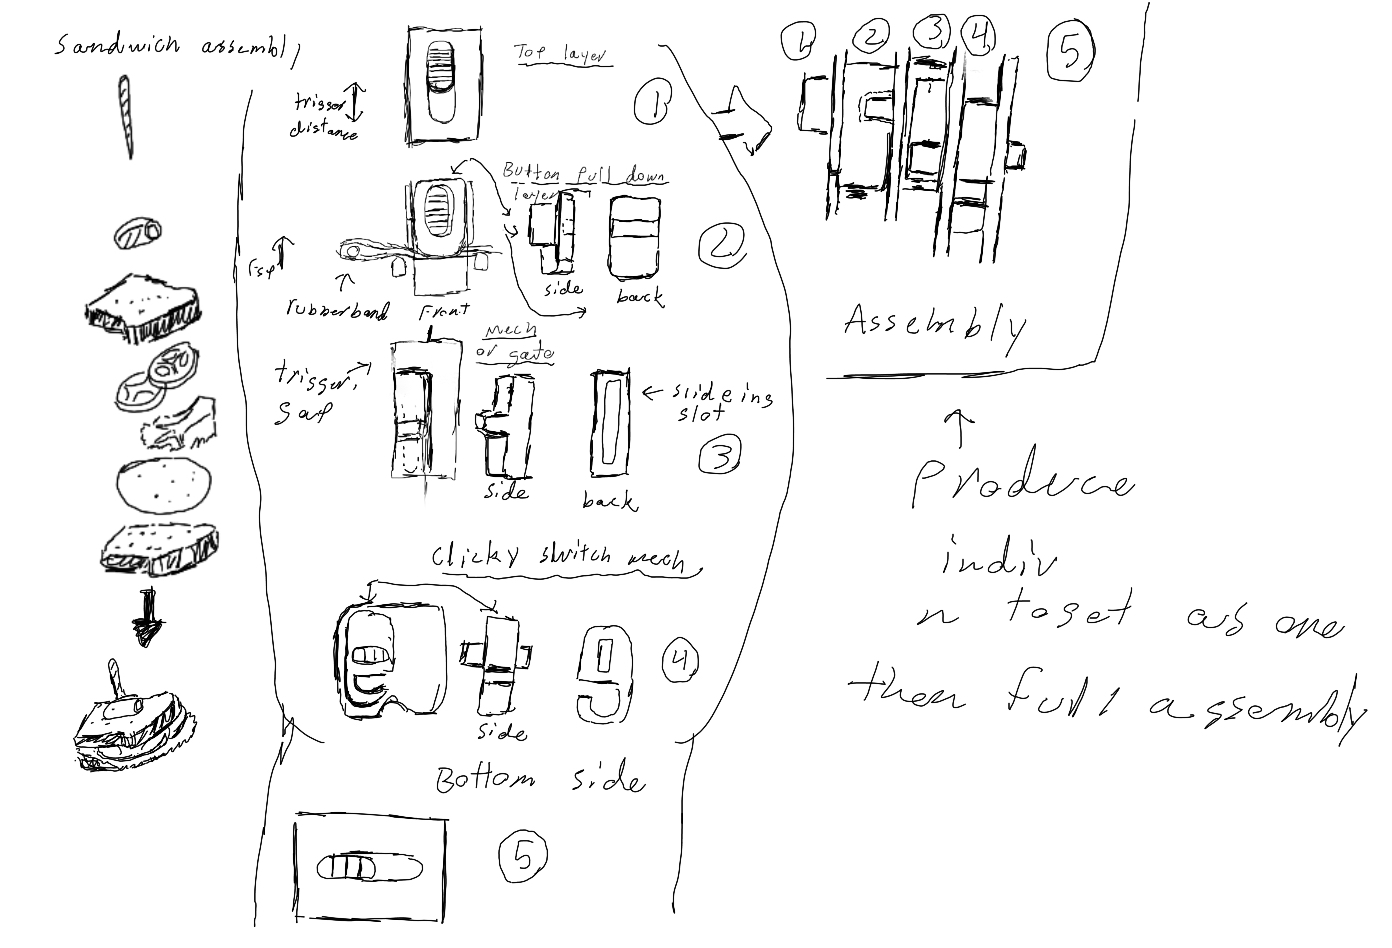 Sandwich assembly
Top layer
1
trigger
distance
Button pull down
layer
2
side
back
rubberband
Front
mech
or gate
trigger,
slideing
slot
3
side
back
Clicky switch mech
4
side
Bottom side
5
1
2
3
4
5
Assembly
Produce
indiv
n toset as one
then full assembly